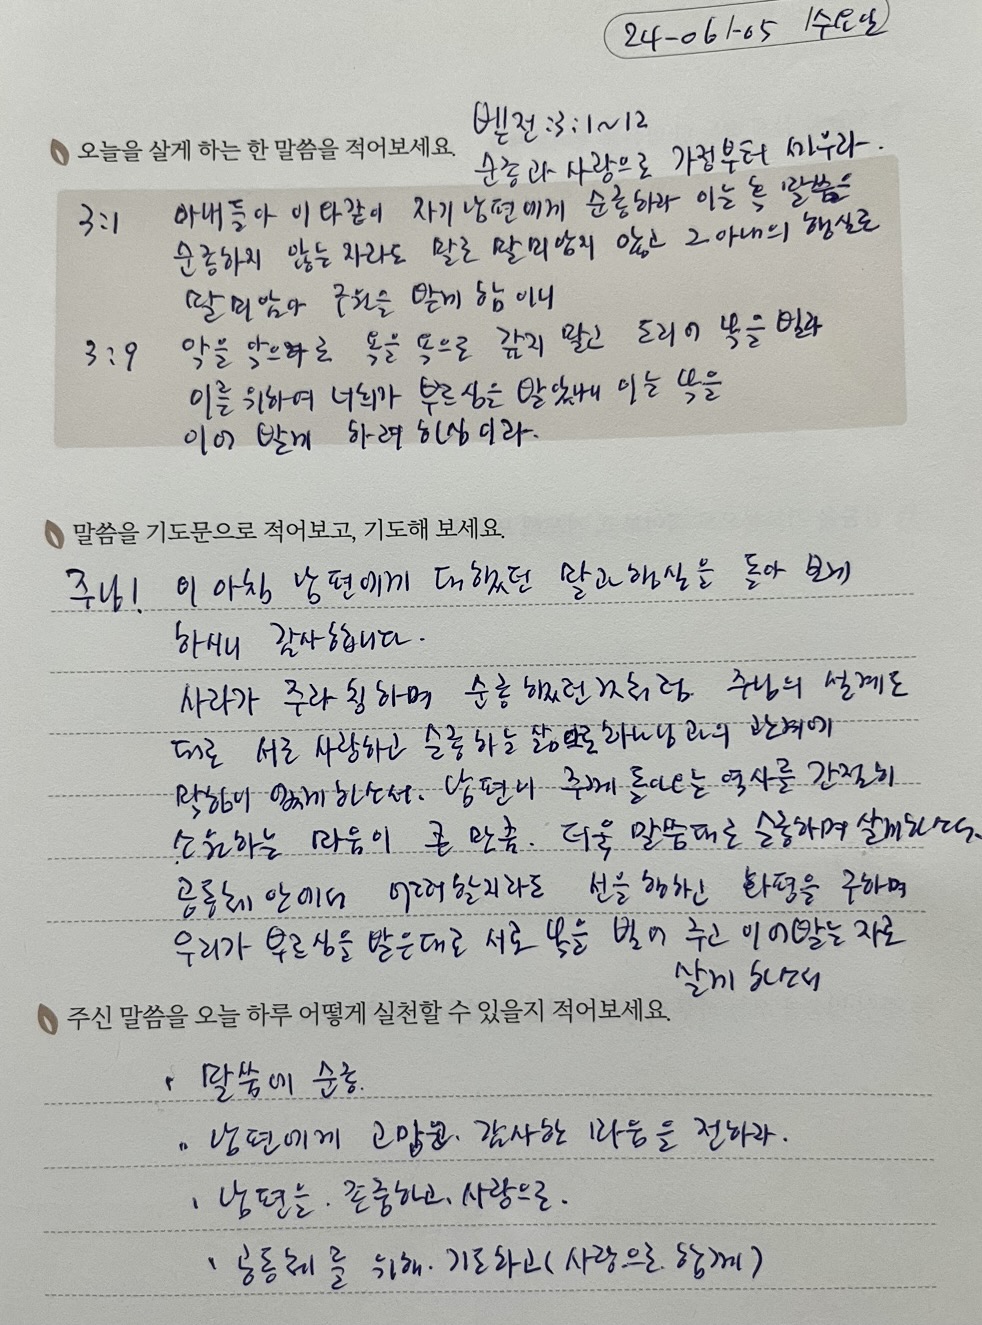 24-06-05 수요일
벧전:3:1~12
오늘을 살게 하는 한 말씀을 적어보세요.
순종과 사랑으로 가정부터 세우라.
3:1 아내들아 이와같이 자기 남편에게 순종하라 이는 혹 말씀을
순종하지 않는 자라도 말로 말미암지 않고 그 아내의 행실로
말미암아 구원을 받게 함이니
3:9 악을 악으로 욕을 욕으로 갚지 말고 도리어 복을 빌라
이를 위하여 너희가 부르심은 받았내 이는 복을
이어 받게 하려 하심이라.
말씀을 기도문으로 적어보고, 기도해 보세요.
주님! 이 아침 남편에게 대했던 말과 행실을 돌아 보게
하시니 감사합니다.
사라가 주라 칭하며 순종했던것처럼 주님의 설계도
대로 서로 사랑하고 순종하는 삶으로 하나님과의 관계에
막힘이 없게하소서. 남편이 주께 돌아오는 역사를 간절히
소원하는 마음이 큰 만큼. 더욱 말씀대로 순종하며 살게하소서.
공동체 안에서 어떠할지라도 선을 행하고 화평을 구하며
우리가 부르심을 받은대로 서로 복을 빌어 주고 이어받는 자로
살게 하소서
주신 말씀을 오늘 하루 어떻게 실천할 수 있을지 적어보세요.
말씀에 순종.
남편에게 고맙고. 감사한 마음을 전하라.
남편을. 존중하고, 사랑으로.
공동체를 위해. 기도하고(사랑으로 함께)